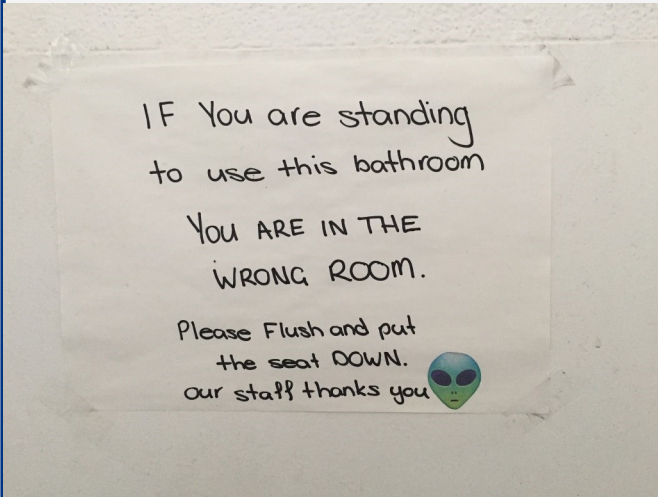 IF You are standing
to use this bathroom
You ARE IN THE
WRONG ROOM.
Please Flush and put
the seat DOWN.
our staff thanks you